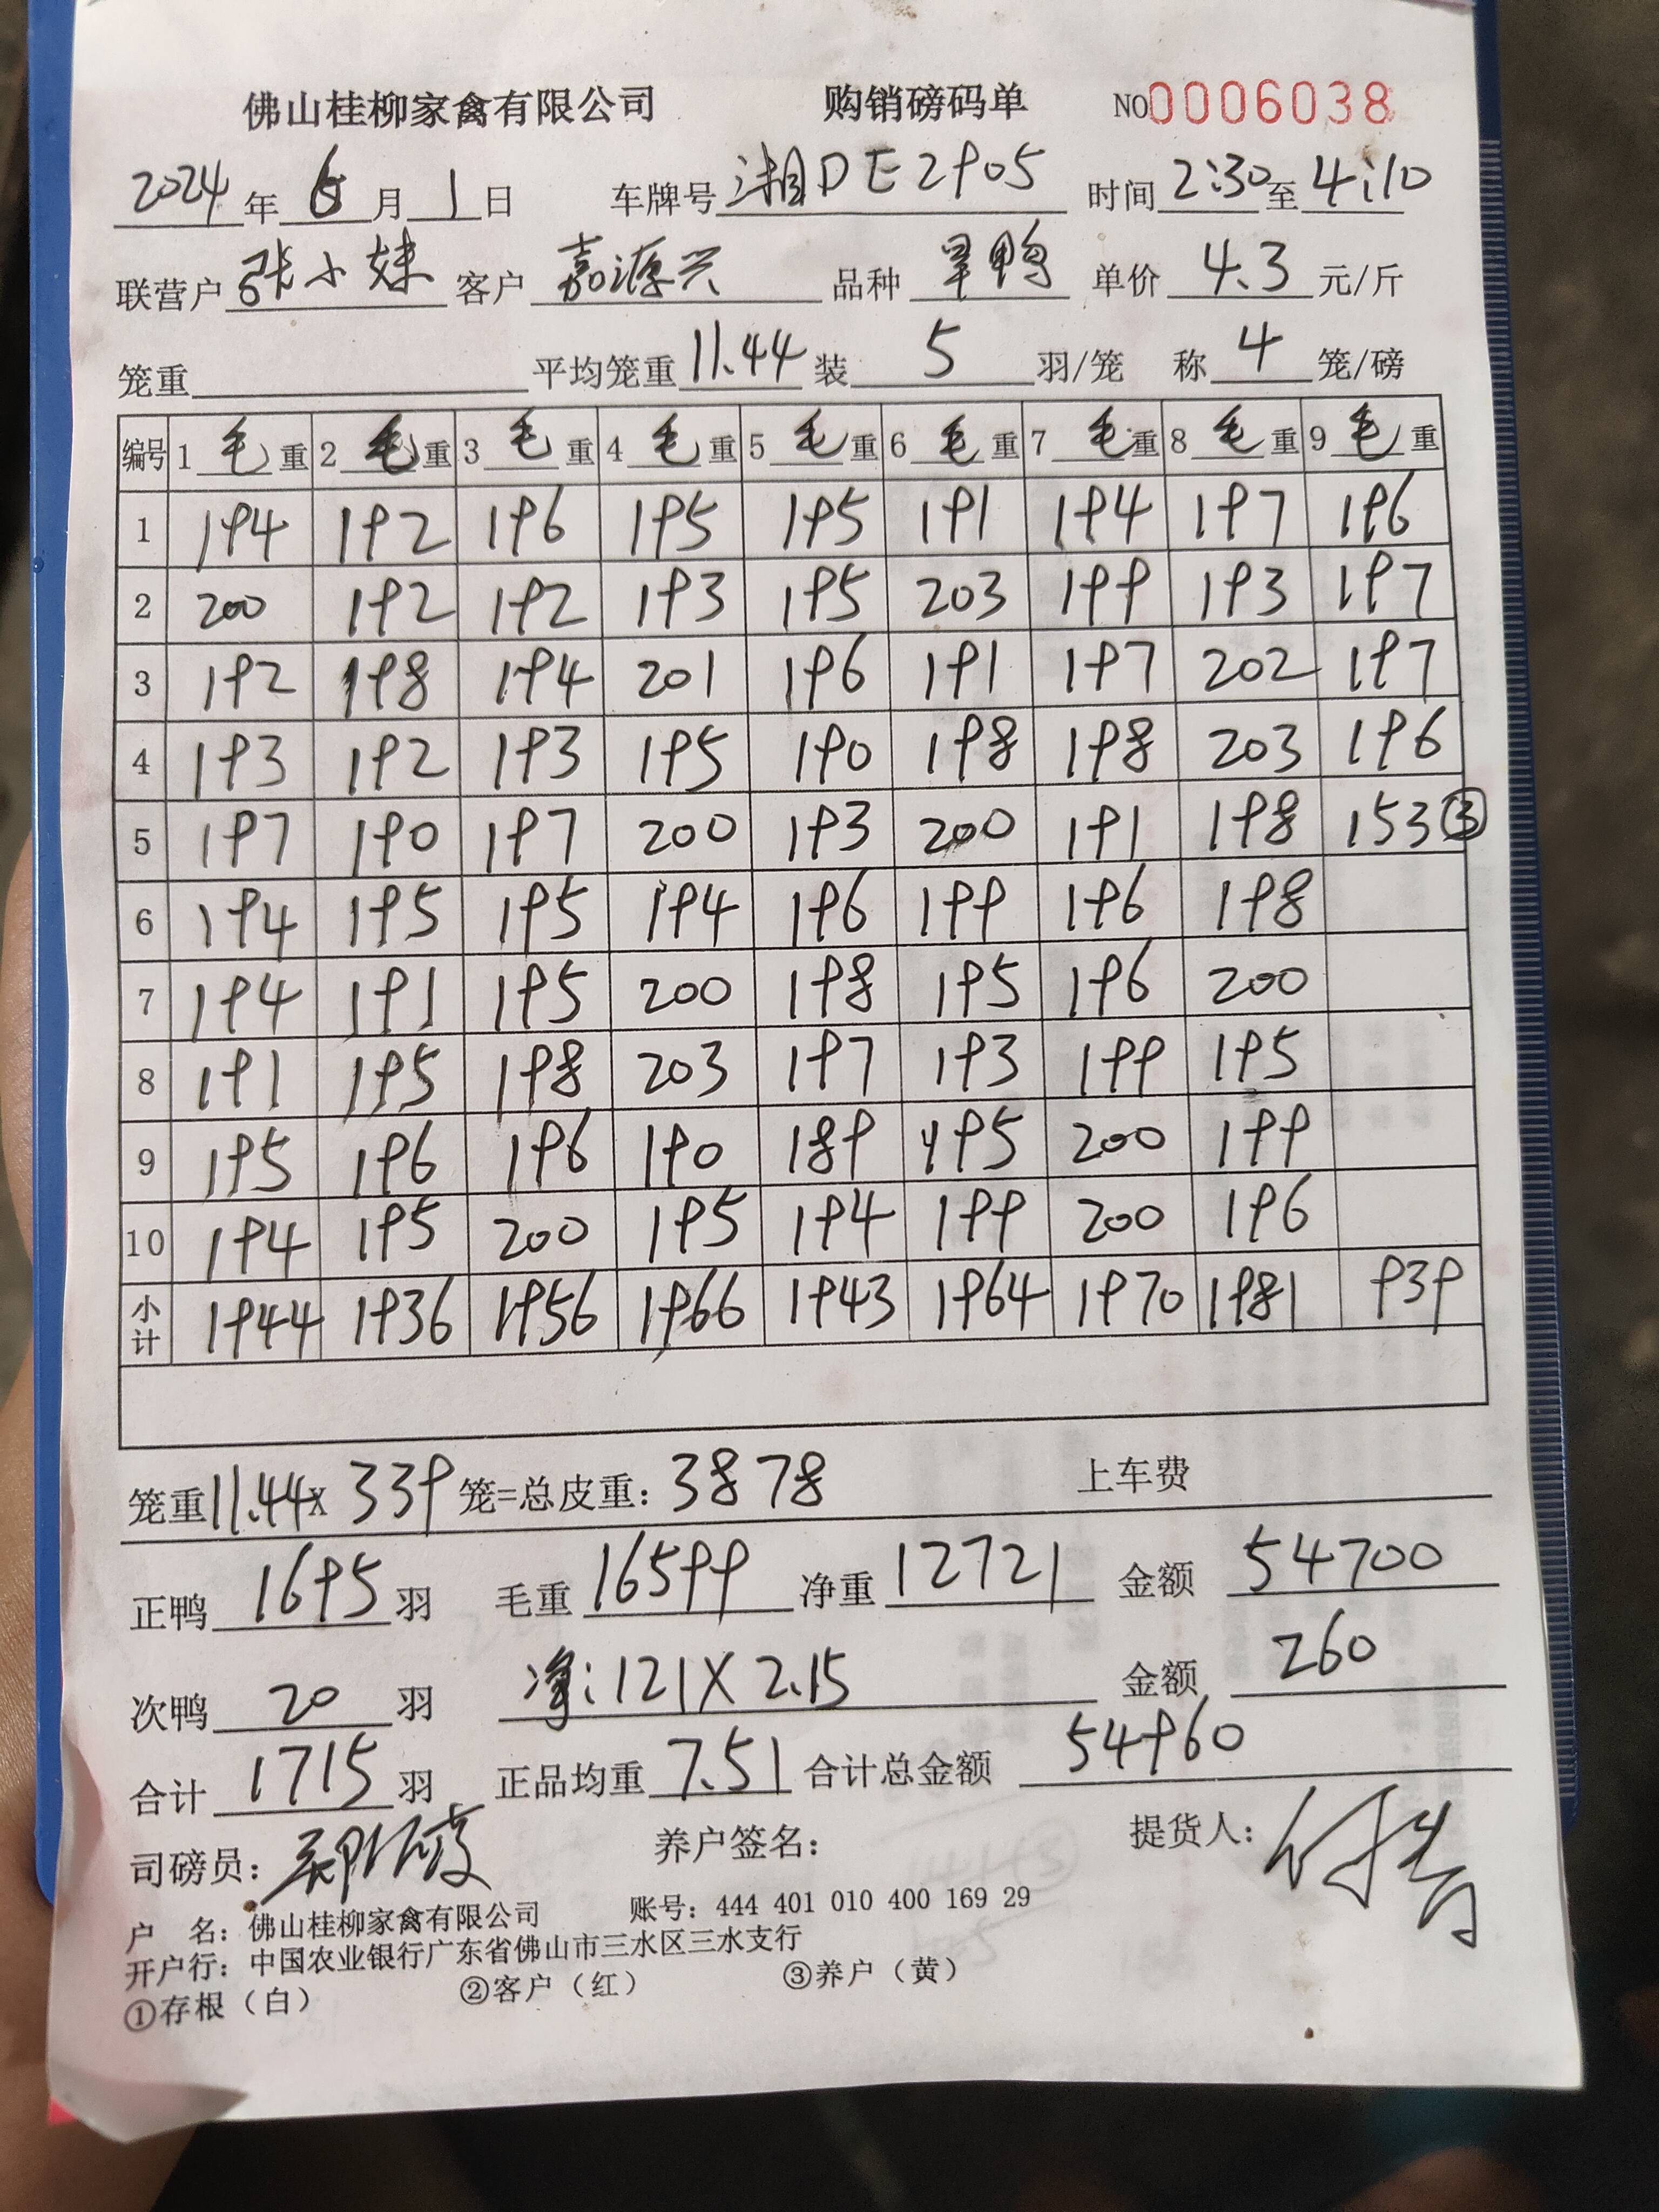 佛山桂柳家禽有限公司 购销磅码单 NO0006038
2024年6月1日 车牌号湘DE2905 时间2:30至4:10
联营户张小妹 客户嘉源兴 品种旱鸭 单价4.3元/斤
笼重 平均笼重11.44装5羽/笼 称4笼/磅
编号 1毛重 2毛重 3毛重 4毛重 5毛重 6毛重 7毛重 8毛重 9毛重
1 194 192 196 195 195 191 194 197 196
2 200 192 192 193 195 203 199 193 197
3 192 198 194 201 196 191 197 202 197
4 193 192 193 195 190 198 198 203 196
5 197 190 197 200 193 200 191 198 153③
6 194 195 195 194 196 199 196 198
7 194 191 195 200 198 195 196 200
8 191 195 198 203 197 193 199 195
9 195 196 196 190 189 195 200 199
10 194 195 200 195 194 199 200 196
小计 1944 1936 1956 1966 1943 1964 1970 1981 939
笼重11.44×339笼=总皮重：3878 上车费
正鸭1695羽 毛重16599净重12721 金额54700
次鸭20羽 净:121×2.15 金额260
合计1715羽 正品均重7.51合计总金额54960
司磅员： 养户签名： 提货人：
户 名：佛山桂柳家禽有限公司 账号：444 401 010 400 169 29
开户行：中国农业银行广东省佛山市三水区三水支行
①存根（白） ②客户（红） ③养户（黄）